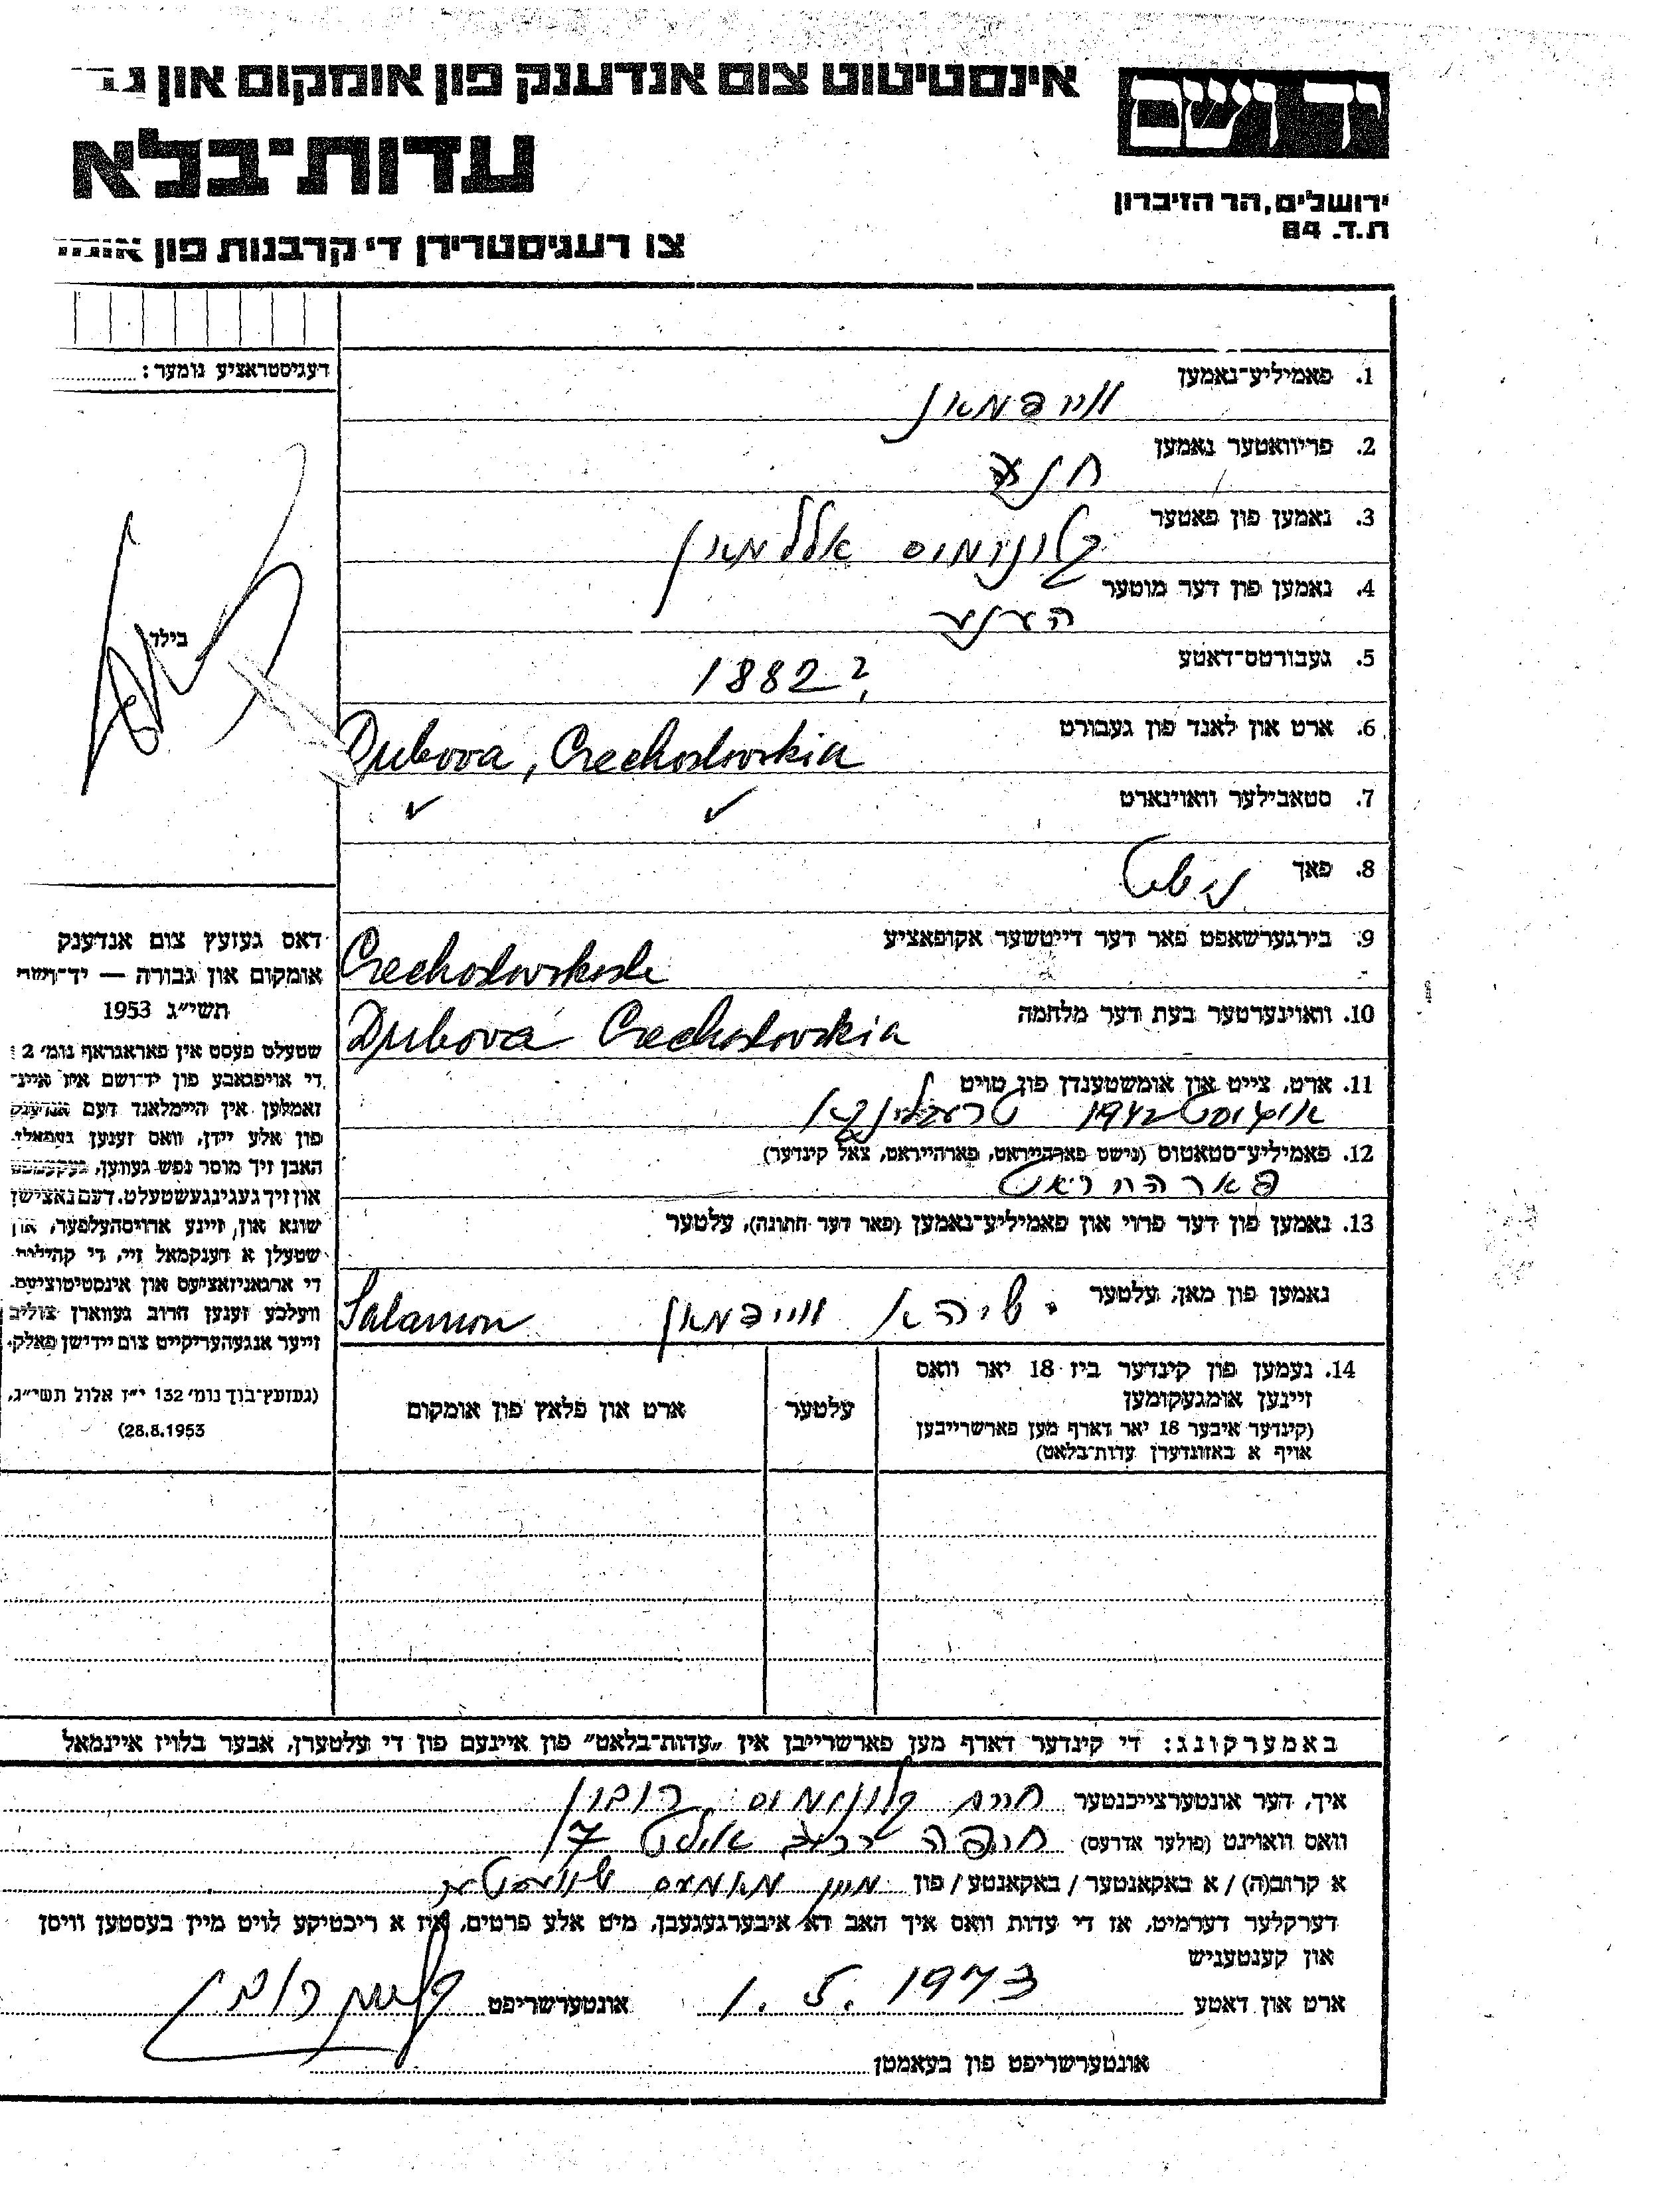 יד ושם
אינסטיטוט צום אנדענק פון אומקום און
עדות־בלא
ירושלים, הר הזיכרון
ת.ד. 84
צו רעגיסטרירן די קרבנות פון
רעגיסטראציע נומער:
1. פאמיליע־נאמען
ווייסמאן
2. פריוואטער נאמען
חנה
3. נאמען פון פאטער
קלונימוס אללמאן
4. נאמען פון דער מוטער
הענע
5. געבורטס־דאטע
1882 ?
6. ארט און לאנד פון געבורט
Dubova, Czechoslovskia
בילד
7. סטאבילער וואוינארט
✓ ✓
8. פאך
9. בירגערשאפט פאר דער דייטשער אקופאציע
10. וואוינערטער בעת דער מלחמה
Dubova Czechoslovskia
11. ארט, צייט און אומשטענדן פון טויט
אויגוסט 1942
12. פאמיליע־סטאטוס (נישט פארהייראט, פארהייראט, צאל קינדער)
פארהיראט
13. נאמען פון דער פרוי און פאמיליע־נאמען (פאר דער חתונה), עלטער
נאמען פון מאן, עלטער
ווייסמאן Salamon
דאס געזעץ צום אנדענק
אומקום און גבורה — יד־ושם
תשי״ג 1953
שטעלט פעסט אין פאראגראף נומ׳ 2:
די אויפגאבע פון יד־ושם איז איינ־
זאמלען אין היימלאנד דעם אנדענק
פון אלע יידן, וואס זענען געפאלן,
האבן זיך מוסר נפש געווען, געקעמפט
און זיך געגינגעשטעלט דעם נאצישן
שונא און זיינע ארויסהעלפער, און
שטעלן א דענקמאל זיי, די קהילות,
די ארגאניזאציעס און אינסטיטוציעס,
וועלכע זענען חרוב געווארן צוליב
זייער אנגעהעריקייט צום יידישן פאלק.
(געזעץ־בוך נומ׳ 132 י״ז אלול תשי״ג,
28.8.1953)
14. נעמען פון קינדער ביז 18 יאר וואס
זיינען אומגעקומען
(קינדער איבער 18 יאר דארף מען פארשרייבן
אויף א באזונדערן עדות־בלאט)
עלטער
ארט און פלאץ פון אומקום
באמערקונג: די קינדער דארף מען פארשרייבן אין „עדות־בלאט״ פון איינעם פון די עלטערן, אבער בלויז איינמאל
איך, דער אונטערצייכנטער חיים קלונימוס רובין
וואס וואוינט (פולער אדרעס) חיפה 7
א קרוב(ה) / א באקאנטער / באקאנטע / פון מיין מאמעס שוועסטער
דערקלער דערמיט, אז די עדות וואס איך האב דא איבערגעגעבן, מיט אלע פרטים, איז א ריכטיקע לויט מיין בעסטען וויסן
און קענטעניש
ארט און דאטע 1.5.1973 אונטערשריפט רובין
אונטערשריפט פון בעאמטן